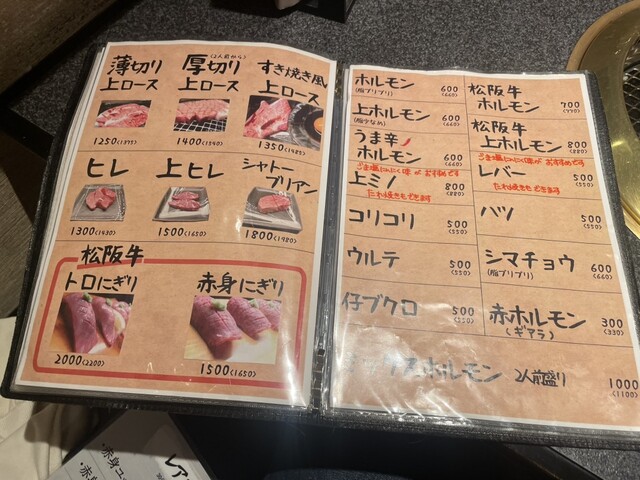 薄切り
上ロース
1250(1375)
(2人前から)
厚切り
上ロース
1400(1540)
すき焼き風
上ロース
1350(1485)
ヒレ
1300(1430)
上ヒレ
1500(1650)
シャトー
ブリアン
1800(1980)
松阪牛
トロにぎり
2000(2200)
赤身にぎり
1500(1650)
ホルモン
(脂プリプリ)
600
(660)
松阪牛
ホルモン
700
(770)
上ホルモン
(脂少なめ)
600
(660)
松阪牛
上ホルモン
800
(880)
うま塩にんにく味が おすすめです
うま辛
ホルモン
600
(660)
うま塩にんにく味が おすすめです
レバー
500
(550)
たれ焼きもできます
上ミノ
800
(880)
たれ焼きもできます
ハツ
500
(550)
コリコリ
500
(550)
シマチョウ
(脂プリプリ)
600
(660)
ウルテ
500
(550)
赤ホルモン
(ギアラ)
300
(330)
仔ブクロ
500
(550)
ホルモン 2人前盛り
1000
(1100)